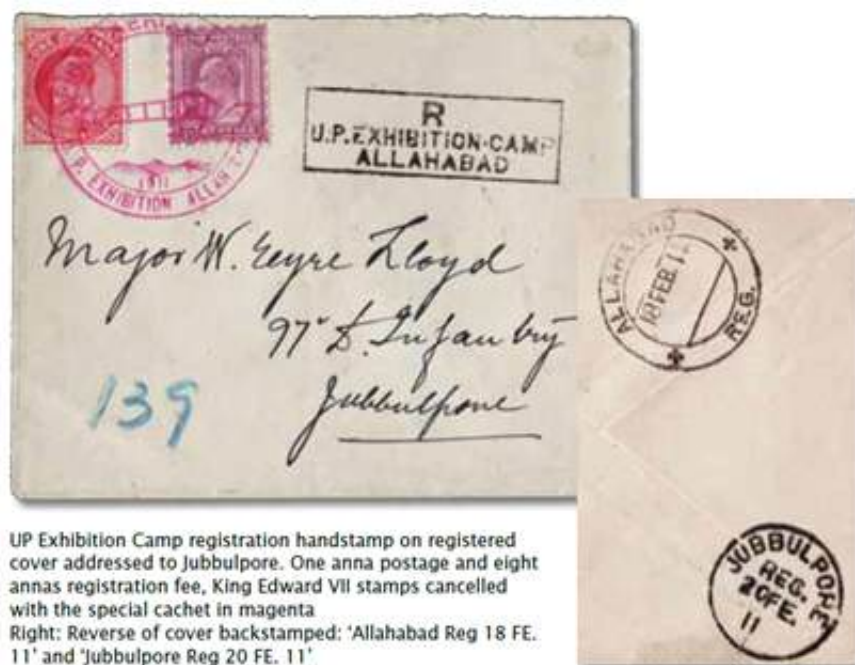 1911
U.P. EXHIBITION ALLAH
R
U.P. EXHIBITION-CAMP
ALLAHABAD
Major W. Eyre Lloyd
97th D. Infantry
Jubbulpore
139
ALLAHABAD
18 FEB. 11
REG.
JUBBULPORE
REG.
20 FE.
11
UP Exhibition Camp registration handstamp on registered
cover addressed to Jubbulpore. One anna postage and eight
annas registration fee, King Edward VII stamps cancelled
with the special cachet in magenta
Right: Reverse of cover backstamped: ‘Allahabad Reg 18 FE.
11’ and ‘Jubbulpore Reg 20 FE. 11’